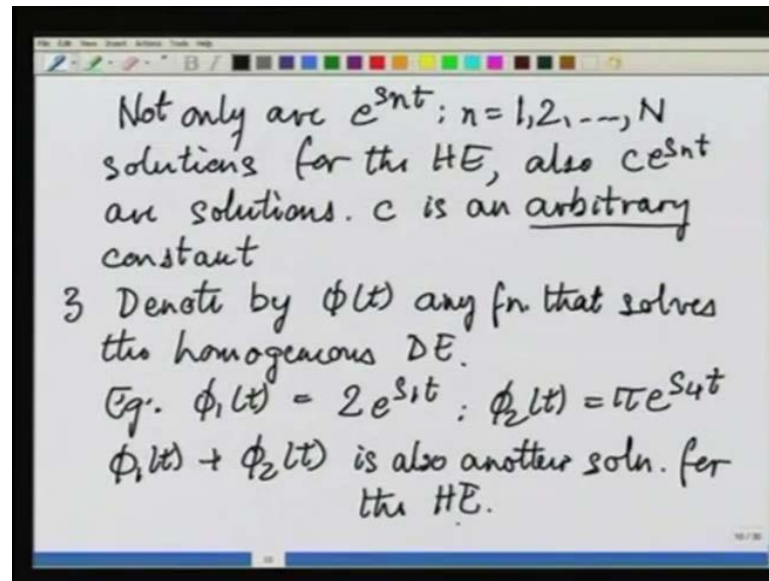 Not only are e^{s_n t} : n = 1, 2, ---, N
solutions for the HE, also c e^{s_n t}
are solutions. c is an arbitrary
constant
3 Denote by ϕ(t) any fn. that solves
the homogeneous DE.
Eg. ϕ₁(t) = 2e^{s₁t} ; ϕ₂(t) = πe^{s₄t}
ϕ₁(t) + ϕ₂(t) is also another soln. for
the HE.